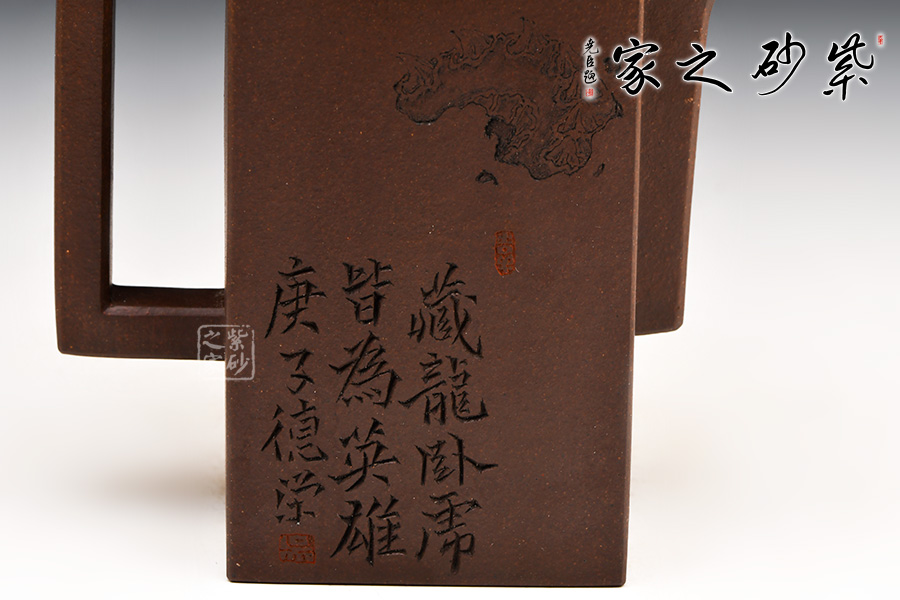 紫砂之家
尧臣题
藏龍卧虎
皆為英雄
庚子德栄
紫砂
之家